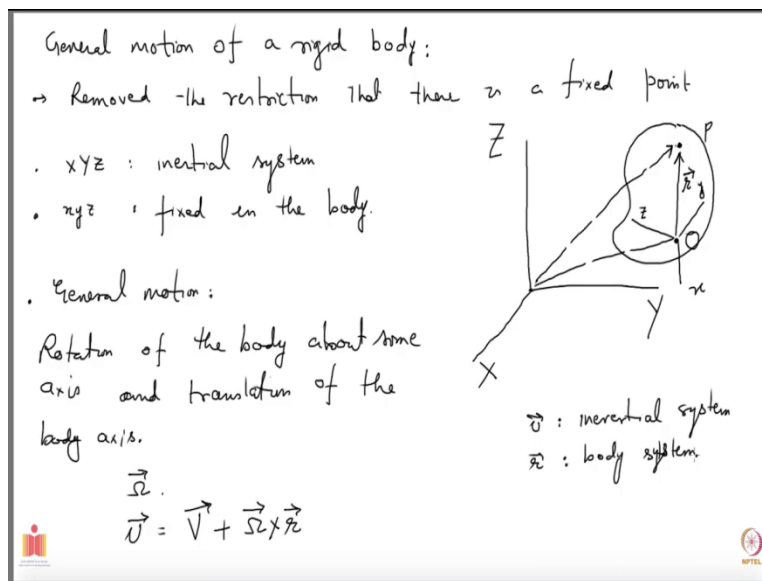 General motion of a rigid body:
→ Removed the restriction that there is a fixed point
. XYZ : inertial system
. xyz : fixed in the body.
. General motion:
Rotation of the body about some
axis and translation of the
body axis.
Ω⃗.
v⃗ = V⃗ + Ω⃗ × r⃗
Z
P
r⃗
y
z
O
x
Y
X
v⃗ : inerertial system
r⃗ : body system.
NPTEL